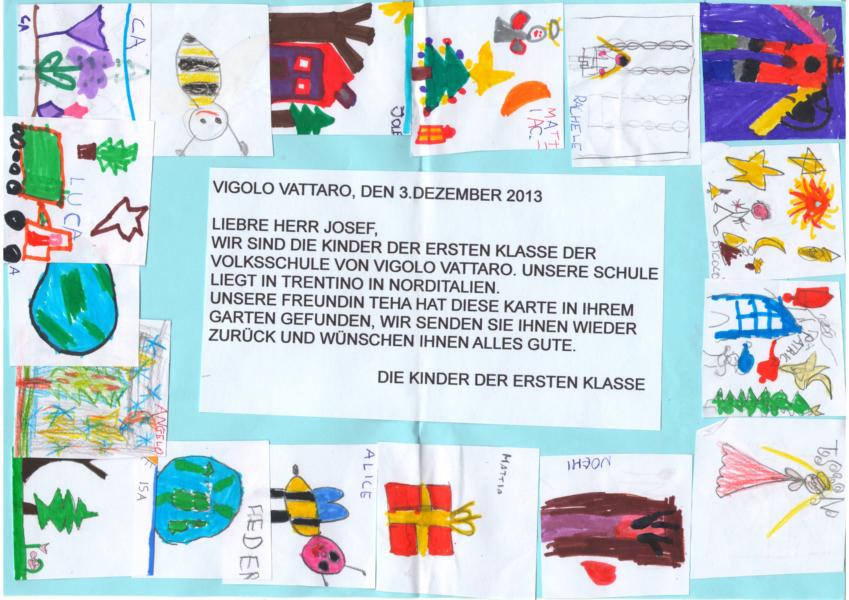 CA
CA
JOE
MATTI
AC.
RACHELE
LUCA
A
PICCOLO
PATRIC
VIGOLO VATTARO, DEN 3.DEZEMBER 2013
LIEBRE HERR JOSEF,
WIR SIND DIE KINDER DER ERSTEN KLASSE DER
VOLKSSCHULE VON VIGOLO VATTARO. UNSERE SCHULE
LIEGT IN TRENTINO IN NORDITALIEN.
UNSERE FREUNDIN TEHA HAT DIESE KARTE IN IHREM
GARTEN GEFUNDEN, WIR SENDEN SIE IHNEN WIEDER
ZURÜCK UND WÜNSCHEN IHNEN ALLES GUTE.
DIE KINDER DER ERSTEN KLASSE
ANGELO
ISA
FEDER
ALICE
MATTIA
NOEMI